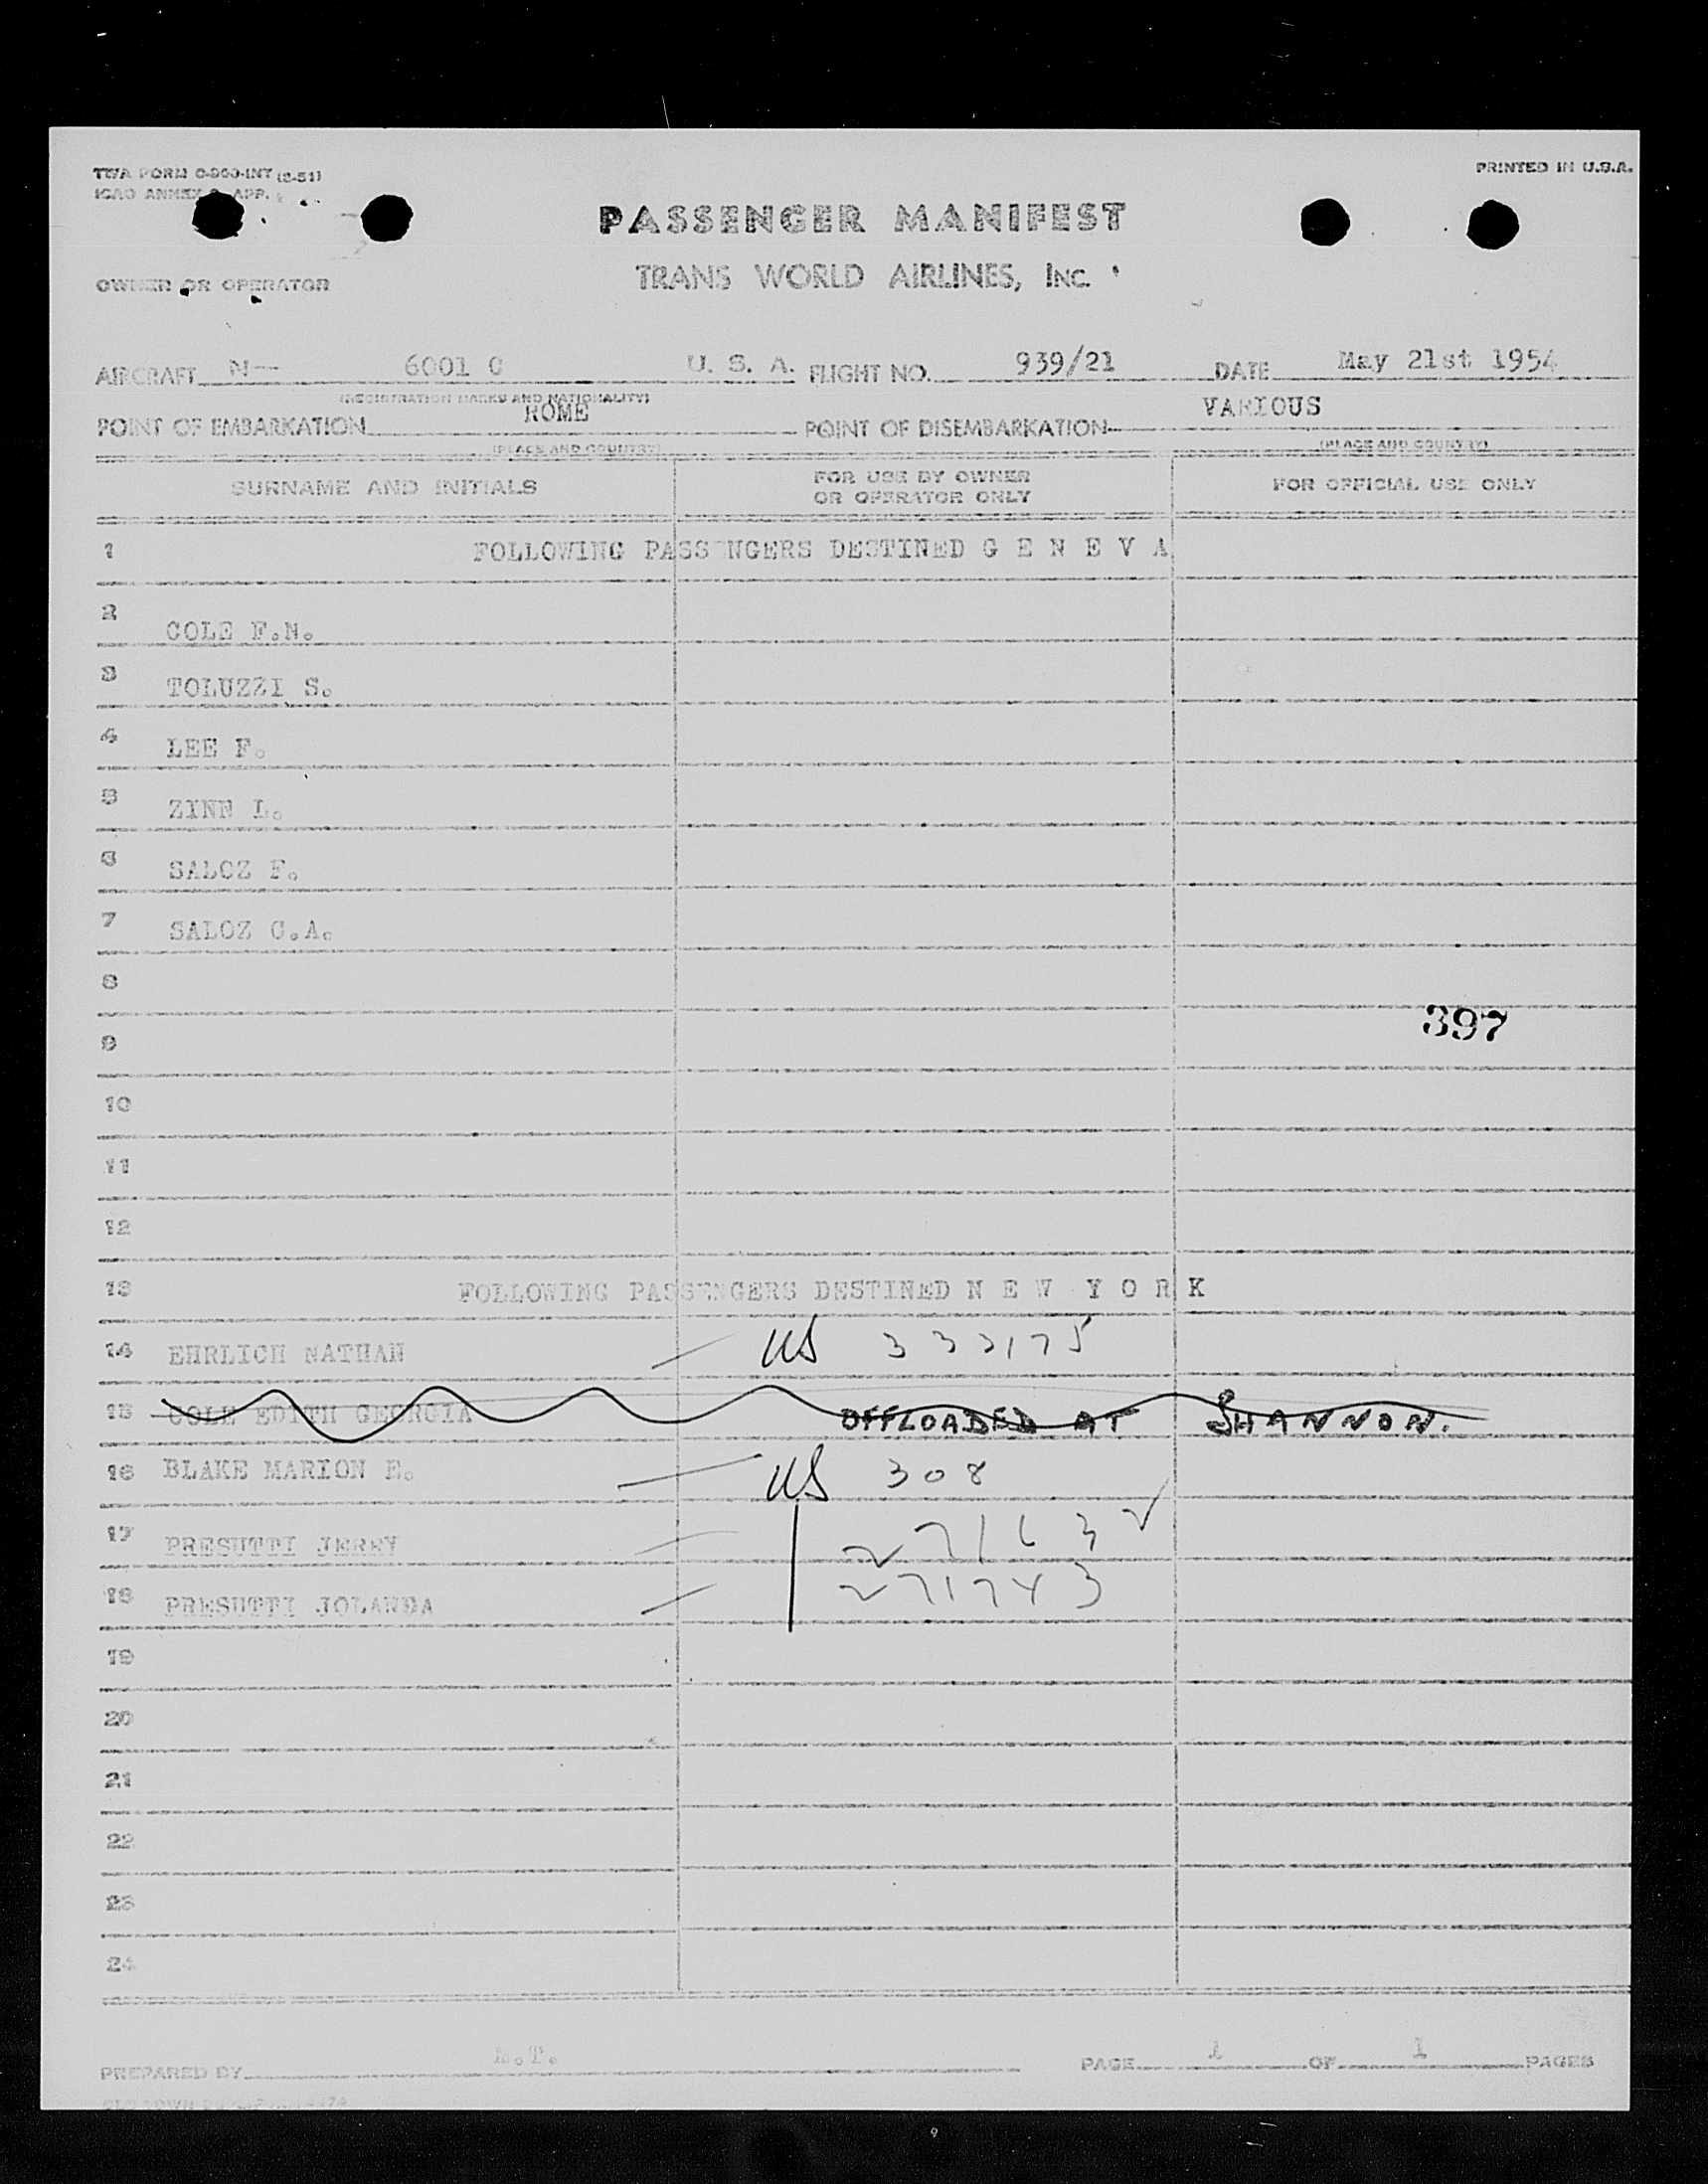 TWA FORM O-900-INT (2-51)
PRINTED IN U.S.A.
ICAO ANNEX 9 APP.
PASSENGER MANIFEST
TRANS WORLD AIRLINES, INC.
OWNER OR OPERATOR
AIRCRAFT N-- 6001 C U. S. A. FLIGHT NO. 939/21 DATE May 21st 1954
(REGISTRATION MARKS AND NATIONALITY)
POINT OF EMBARKATION ROME POINT OF DISEMBARKATION VARIOUS
(PLACE AND COUNTRY) (PLACE AND COUNTRY)
SURNAME AND INITIALS FOR USE BY OWNER OR OPERATOR ONLY FOR OFFICIAL USE ONLY
1 FOLLOWING PASSENGERS DESTINED G E N E V A
2 COLE F.N.
3 TOLUZZI S.
4 LEE F.
5 ZINN L.
6 SALOZ F.
7 SALOZ C.A.
8
397
9
10
11
12
13 FOLLOWING PASSENGERS DESTINED N E W Y O R K
14 EHRLICH NATHAN US 333175
15 COLE EDITH GEORGIA OFFLOADED AT SHANNON.
16 BLAKE MARION E. US 308
17 PRESUTTI JERRY
18 PRESUTTI JOLANDA
19
20
21
22
23
24
PREPARED BY PAGE 1 OF 1 PAGES